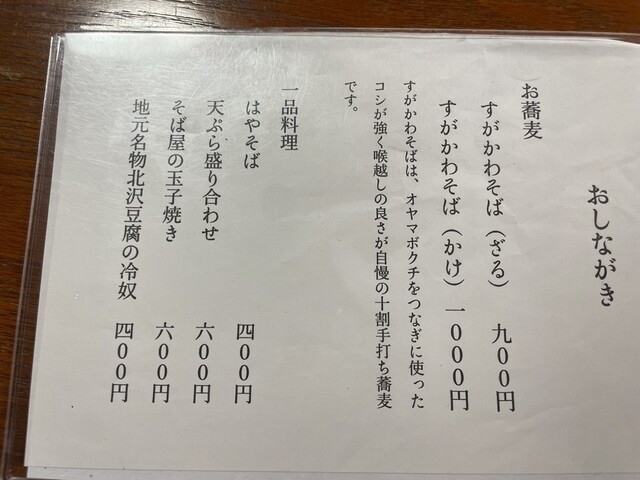 おしながき
お蕎麦
すがかわそば（ざる） 九00円
すがかわそば（かけ） 一000円
すがかわそばは、オヤマボクチをつなぎに使った
コシが強く喉越しの良さが自慢の十割手打ち蕎麦
です。
一品料理
はやそば 四00円
天ぷら盛り合わせ 六00円
そば屋の玉子焼き 六00円
地元名物北沢豆腐の冷奴 四00円